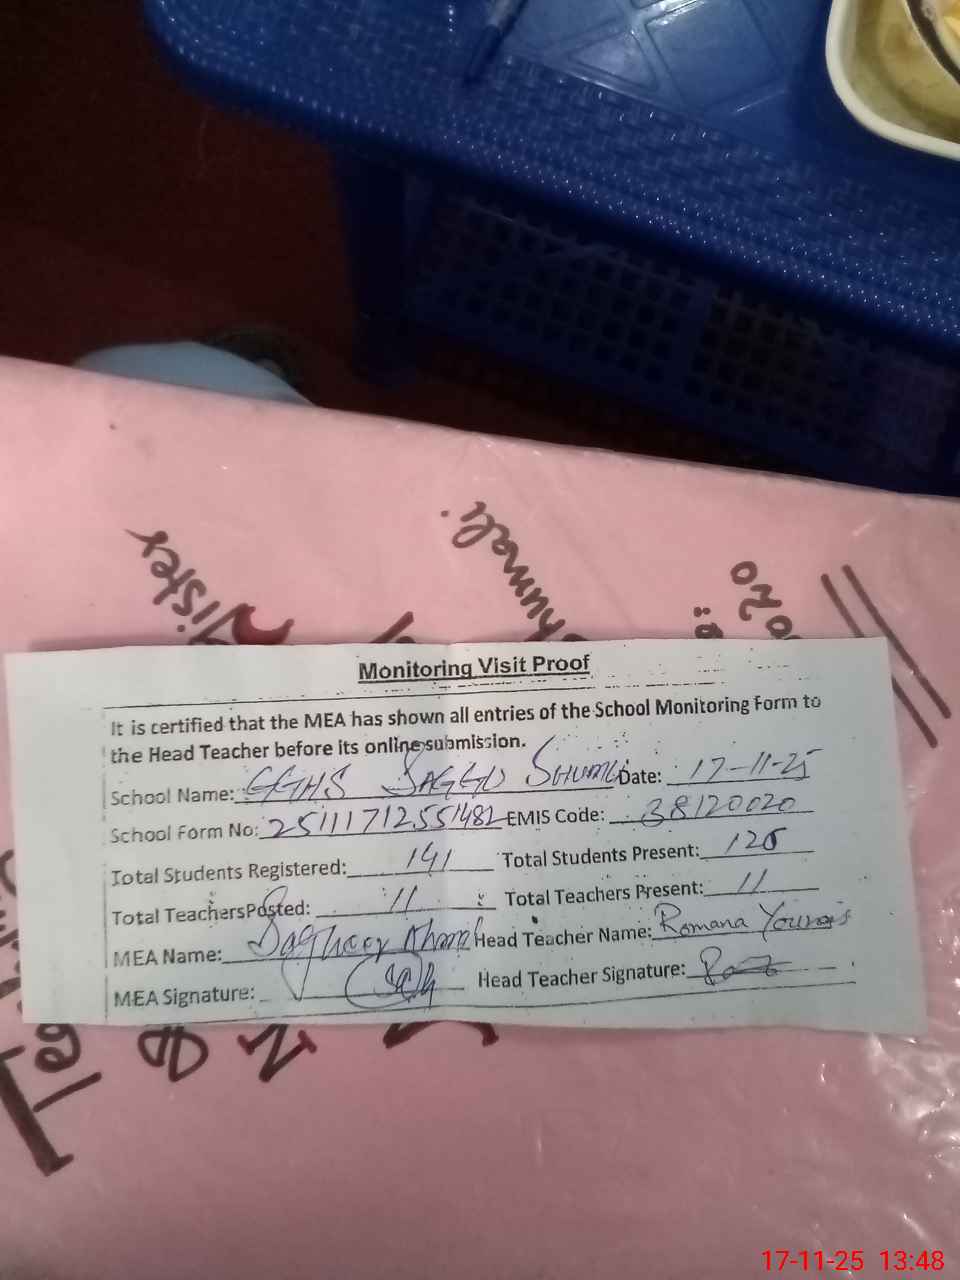 Monitoring Visit Proof
It is certified that the MEA has shown all entries of the School Monitoring Form to
the Head Teacher before its online submission.
School Name: GGHS SAGGU SHUMALI Date: 17-11-25
School Form No: 25111712551482 EMIS Code: 38120020
Total Students Registered: 141 Total Students Present: 126
Total Teachers Posted: 11 Total Teachers Present: 11
MEA Name: Head Teacher Name: Romana Younas
MEA Signature: Head Teacher Signature:
17-11-25 13:48